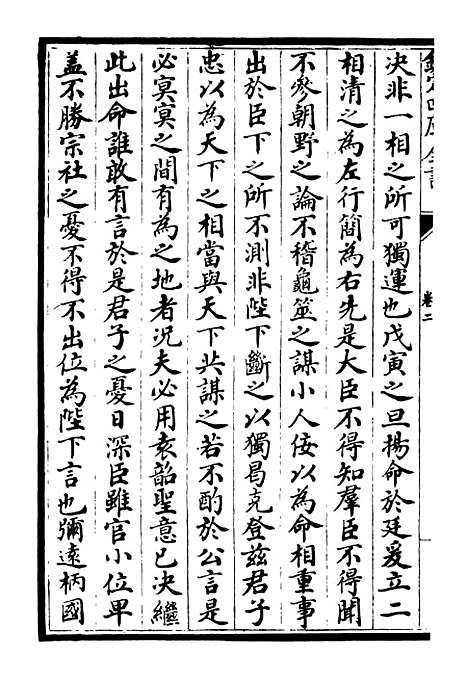 決非一相之所可獨運也戊寅之旦揚命於廷爰立二
相清之為左行簡為右先是大臣不得知羣臣不得聞
不參朝野之論不稽龜筮之謀小人佞以為命相重事
出於臣下之所不測非陛下斷之以獨曷克登茲君子
忠以為天下之相當與天下共謀之若不酌於公言是
必冥冥之間有為之地者況夫必用袁韶聖意已決繼
此出命誰敢有言於是君子之憂日深臣雖官小位卑
盖不勝宗社之憂不得不出位為陛下言也彌遠柄國
卷二